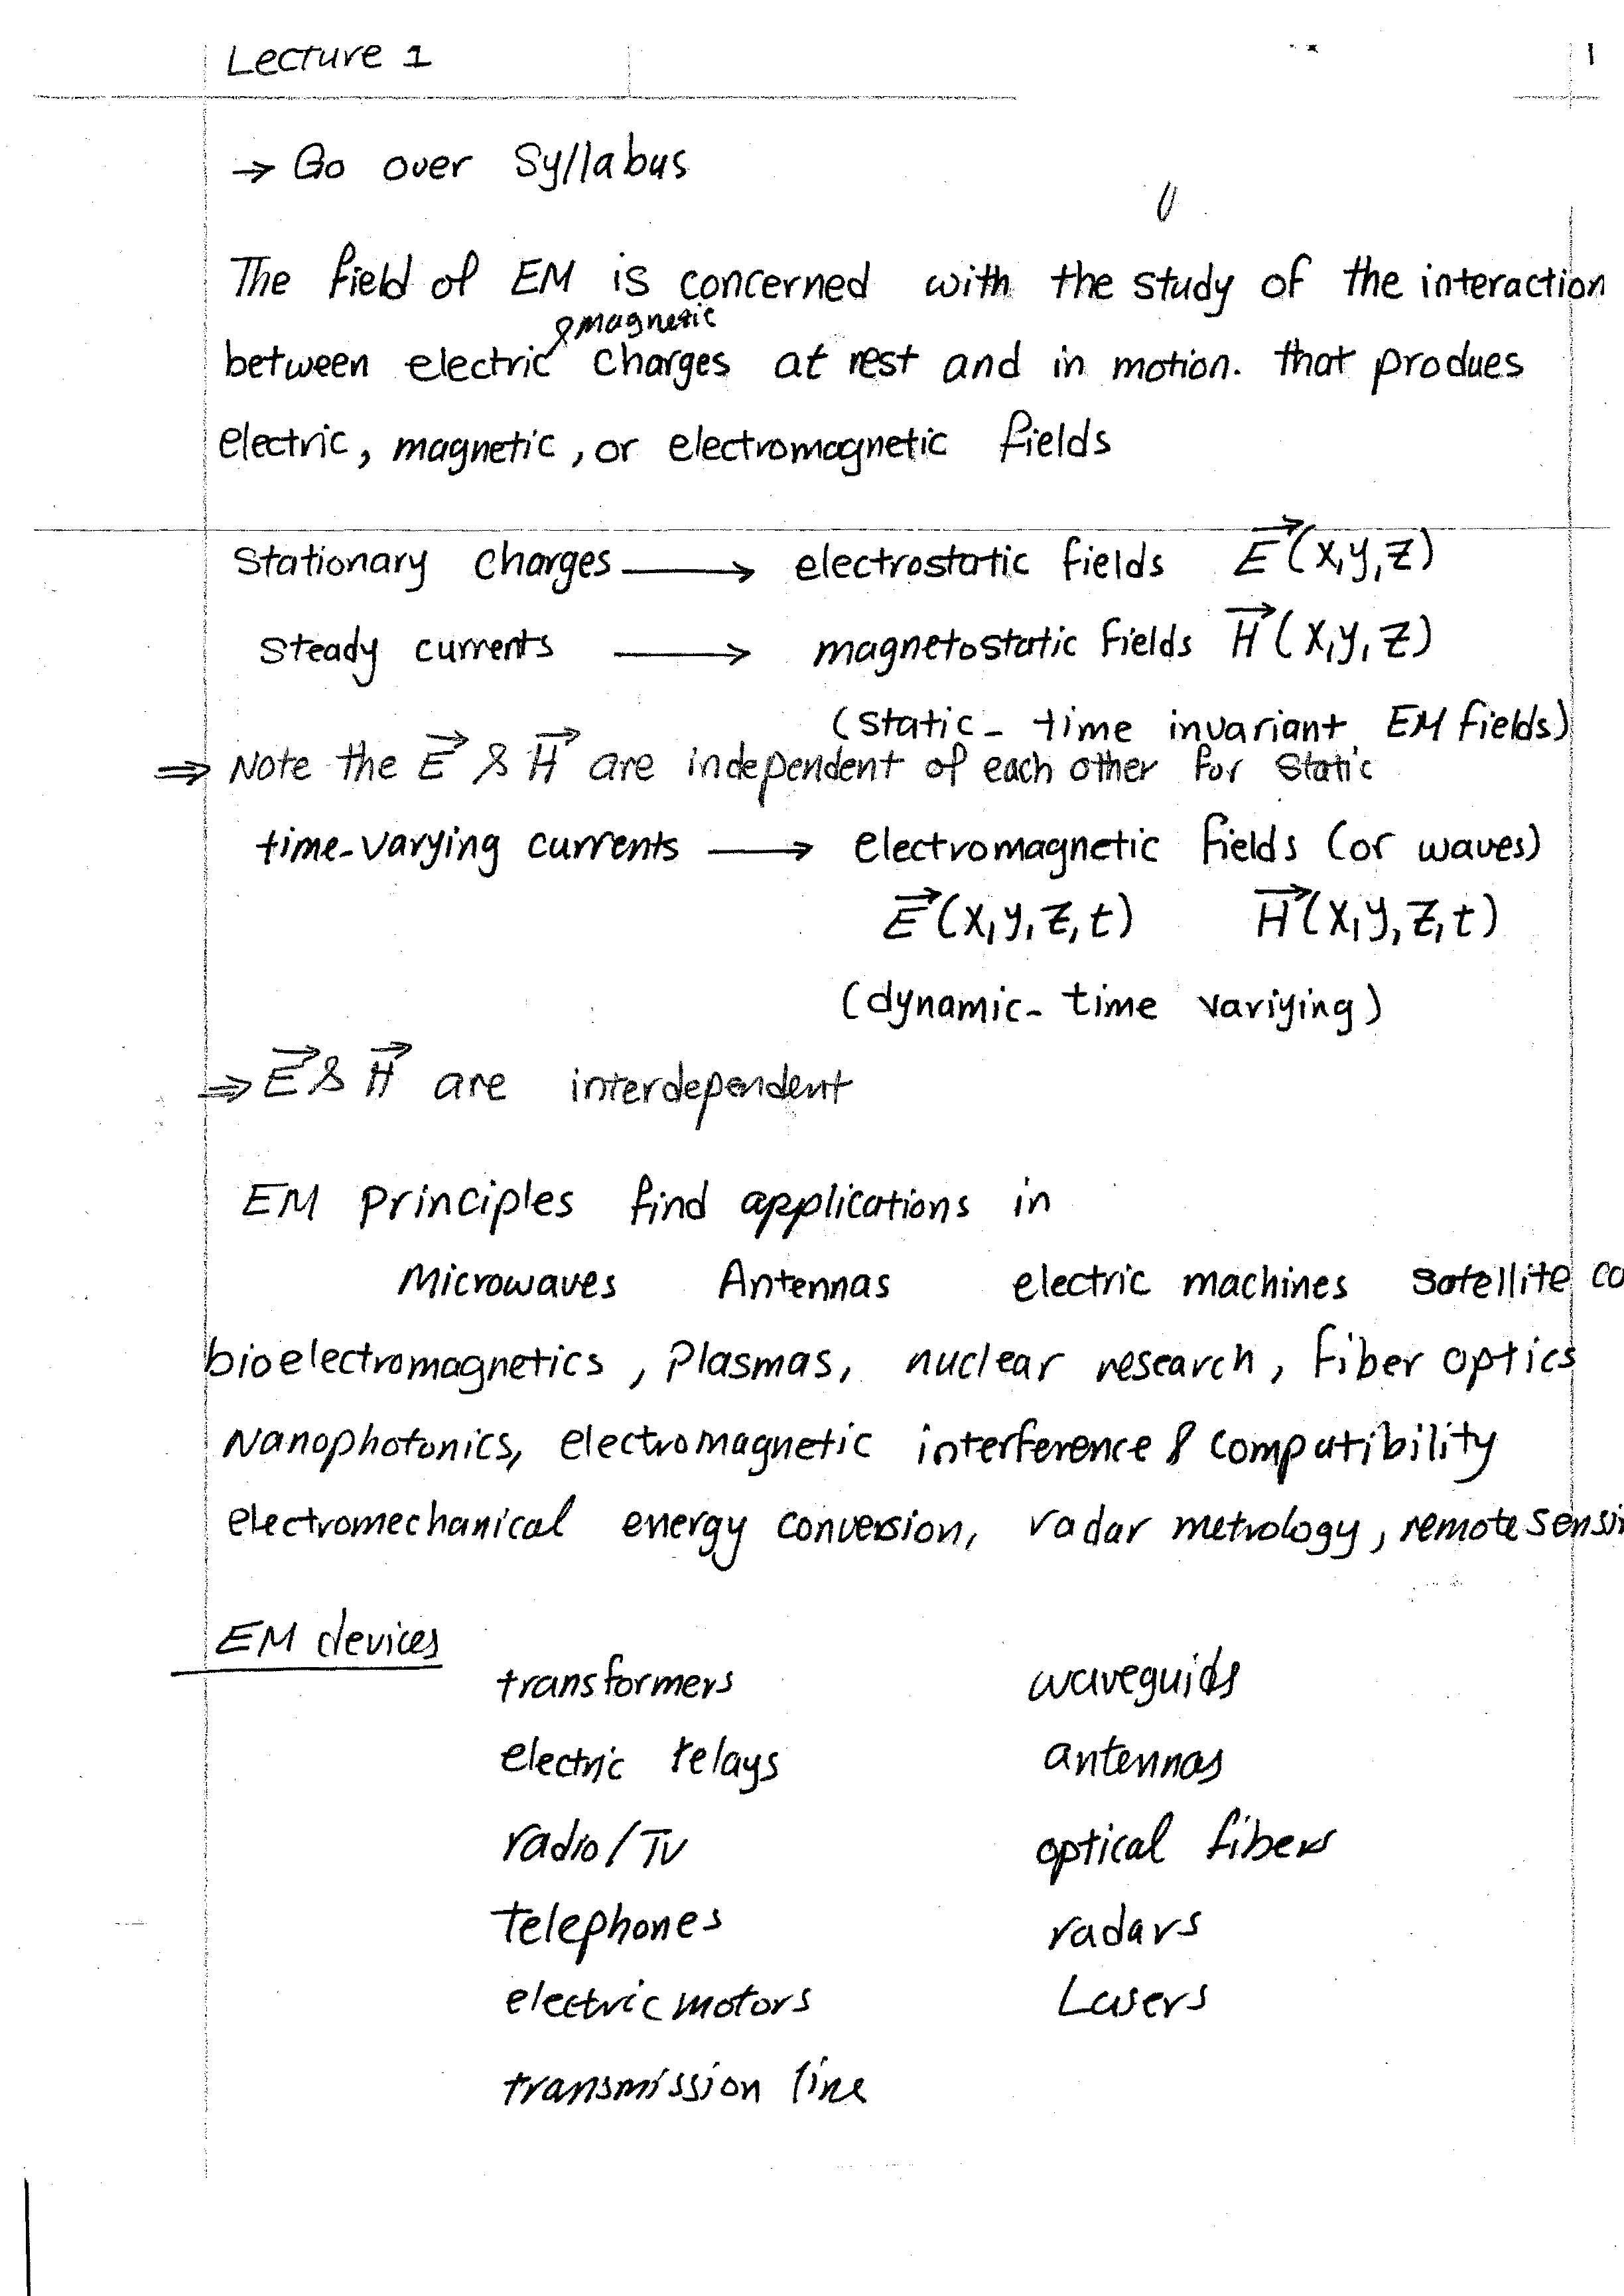 Lecture 1
1
→ Go over Syllabus
The field of EM is concerned with the study of the interaction
& magnetic
between electric charges at rest and in motion. that produes
electric, magnetic, or electromagnetic fields
Stationary charges → electrostatic fields E⃗(x,y,z)
steady currents → magnetostatic fields H⃗(x,y,z)
(static - time invariant EM fields)
⇒ Note the E⃗ & H⃗ are independent of each other for static
time-varying currents → electromagnetic fields (or waves)
E⃗(x,y,z,t) H⃗(x,y,z,t)
(dynamic - time variying)
⇒ E⃗ & H⃗ are interdependent
EM principles find applications in
Microwaves Antennas electric machines satellite co
bioelectromagnetics, Plasmas, nuclear research, fiber optics
Nanophotonics, electromagnetic interference & compatibility
electromechanical energy conversion, radar metrology, remote sensin
EM devices
transformers waveguids
electric relays antennas
radio/TV optical fibers
telephones radars
electric motors Lasers
transmission line